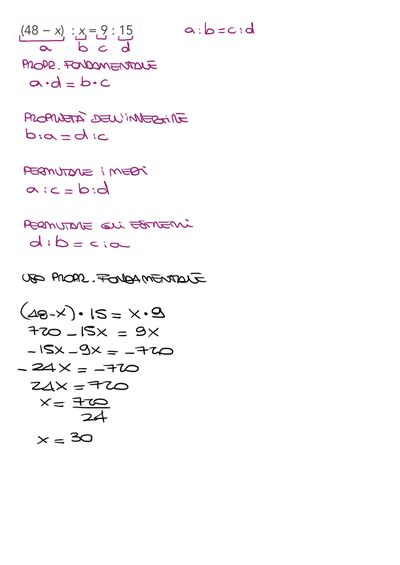 (48 – x) : x = 9 : 15 a:b=c:d
a b c d
PROPR. FONDAMENTALE
a·d=b·c
PROPRIETÀ DELL'INVERTIRE
b:a=d:c
PERMUTARE I MEDI
a:c=b:d
PERMUTARE GLI ESTREMI
d:b=c:a
USO PROPR. FONDAMENTALE
(48-x)·15=x·9
720-15x=9x
-15x-9x=-720
-24x=-720
24x=720
x=720/24
x=30